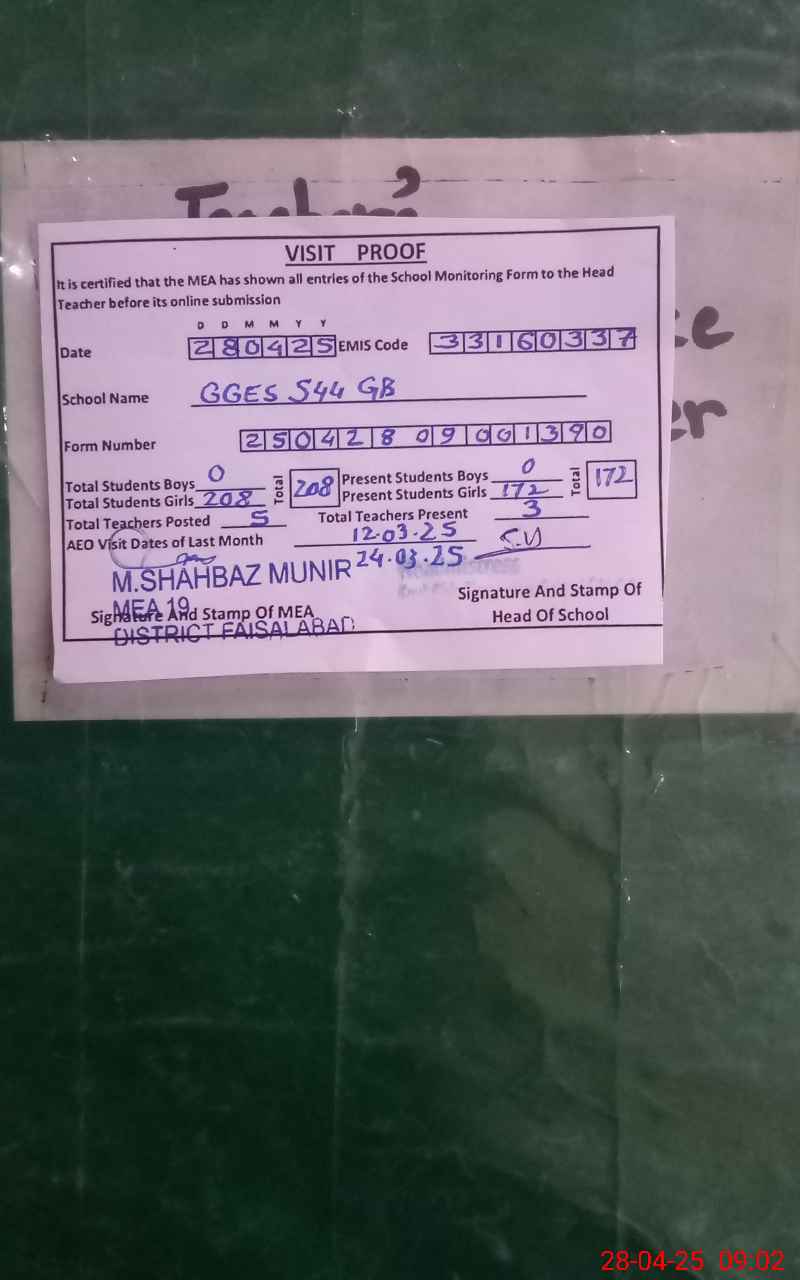 Teachers'
VISIT PROOF
It is certified that the MEA has shown all entries of the School Monitoring Form to the Head
Teacher before its online submission
D D M M Y Y
Date 280425 EMIS Code 33160337
School Name GGES 544 GB
Form Number 25042809001390
Total Students Boys 0 Total 208 Present Students Boys 0 Total 172
Total Students Girls 208 Present Students Girls 172
Total Teachers Posted 5 Total Teachers Present 3
AEO Visit Dates of Last Month 12.03.25
24.03.25
M.SHAHBAZ MUNIR
MEA 19
DISTRICT FAISALABAD
Signature And Stamp Of MEA
Signature And Stamp Of
Head Of School
28-04-25 09:02